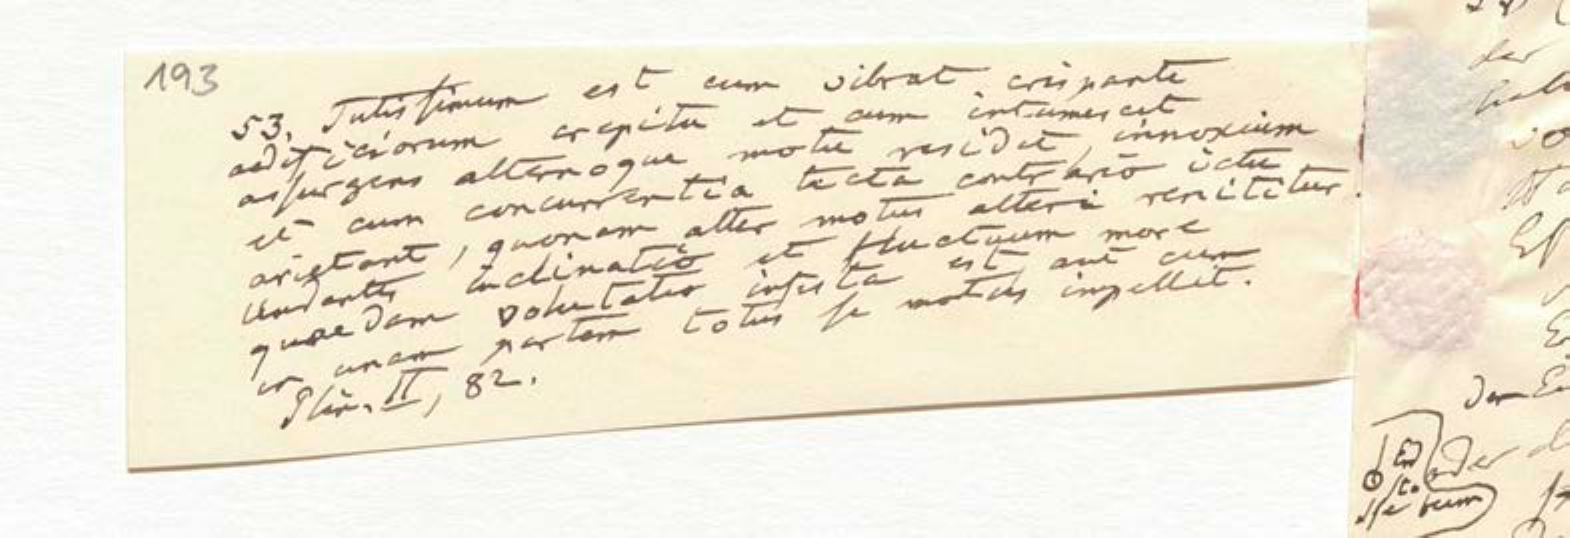 193
53. Tutissimum est cum vibrat crispante
aedificiorum crepitu et cum intumescit
assurgens alternoque motu residit, innoxium
et cum concurrentia tecta contrario ictu
arietant, quonam alter motus alteri renititur.
undantis inclinatio et fluctuum more
quaedam volutatio infesta est aut cum
in unam partem totus se motus impellit.
Plin. II, 82.
der